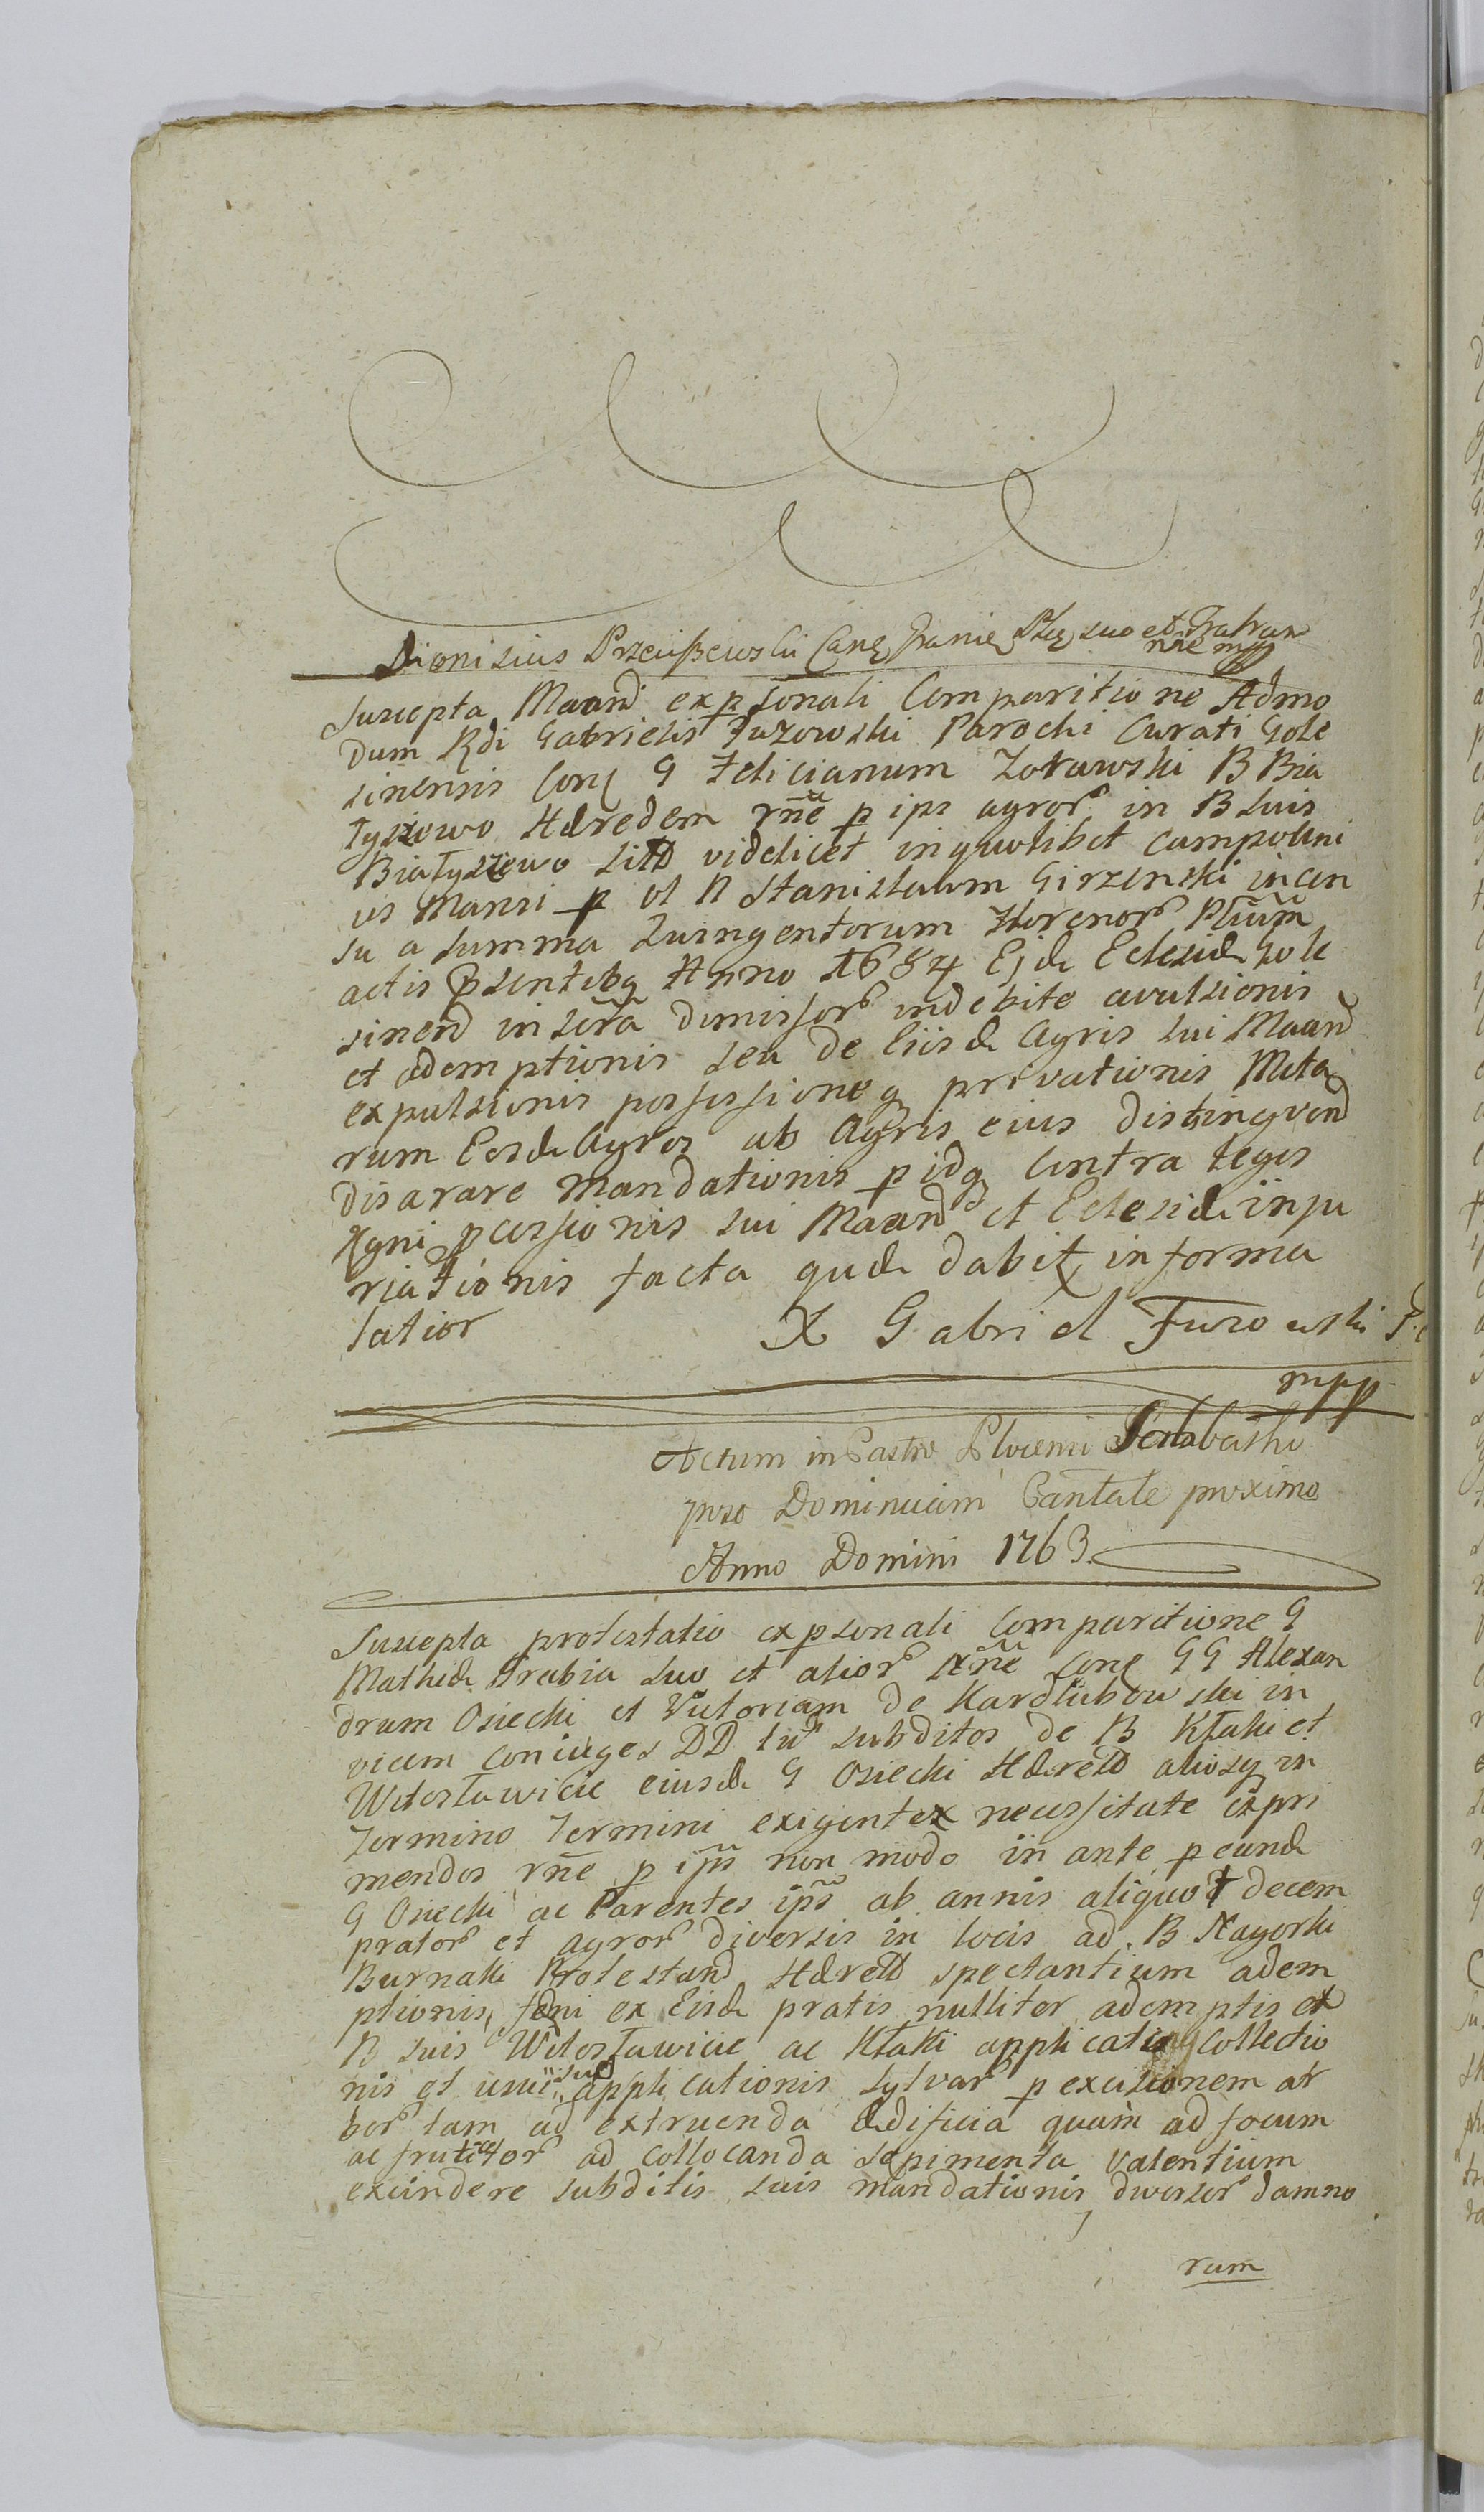 Dionisius Przeciszewski Canc Granic Płoc suo et Fratrum
nñe mpp
Suscepta Maand ex psonali Comparitione Admo
dum Rdi Gabrielis Furowski Parochi Curati Gole
sinensis Conc G Felicianum Zorawski B Bia
łyszewo Hæredem rñe p ips agror in B suis
Białyszewo sitt videlicet in quolibet campo uni
us Mansi p ol N Stanislaum Girzinski in cen
su a summa Quingentorum Florenor Plium
actis psentibq Anno 1684 Ejdæ Eclesiæ Gole
sinend inscra dimissor indebite avulsionis
et ademptionis seu de Eiisdæ Agris sui Maand
expulsionis possessioneq privationis Meta
rum Eosdæ Agros ab Agris eius distingvend
disarare mandationis p idq contra leges
Rgni pcessionis sui Maand et Eclesiæ inju
riationis facta quæ dabit in forma
latior
X Gabriel Furowski P. C
mpp
Actum in Castro Plocensi Sabbatho
pro Dominicam Cantate proximo
Anno Domini 1763.
Suscepta protestatio ex psonali Comparitione G
Mathiæ Grabia suo et alior nñe conc GG Alexan
drum Osiecki et Victoriam de Kardlubowski in
vicem coniuges DD tū subditos de B Kłaki et
Witosławicie eiusdæ G Osiecki Hæredd aliosq in
Termino Termini exigentex necessitate expri
mendos rñe p ips non modo in ante p eundæ
G Osiecki ac Parentes ips ab annis aliquot decem
prator et agror diversis in locis ad B Nagorki
Burnaki Protestand Hæredd spectantium adem
ptionis, fæni ex Eisdæ pratis nulliter ademptis et
B suis Witosławicie ac Kłaki applicatis collectio
nis et usui suo applicationis sylvar p excisionem ar
bor tam ad extruenda ædificia quam ad focum
ac fruticetor ad collocanda sepimenta valentium
excindere subditis suis mandationis diversor damno
rum